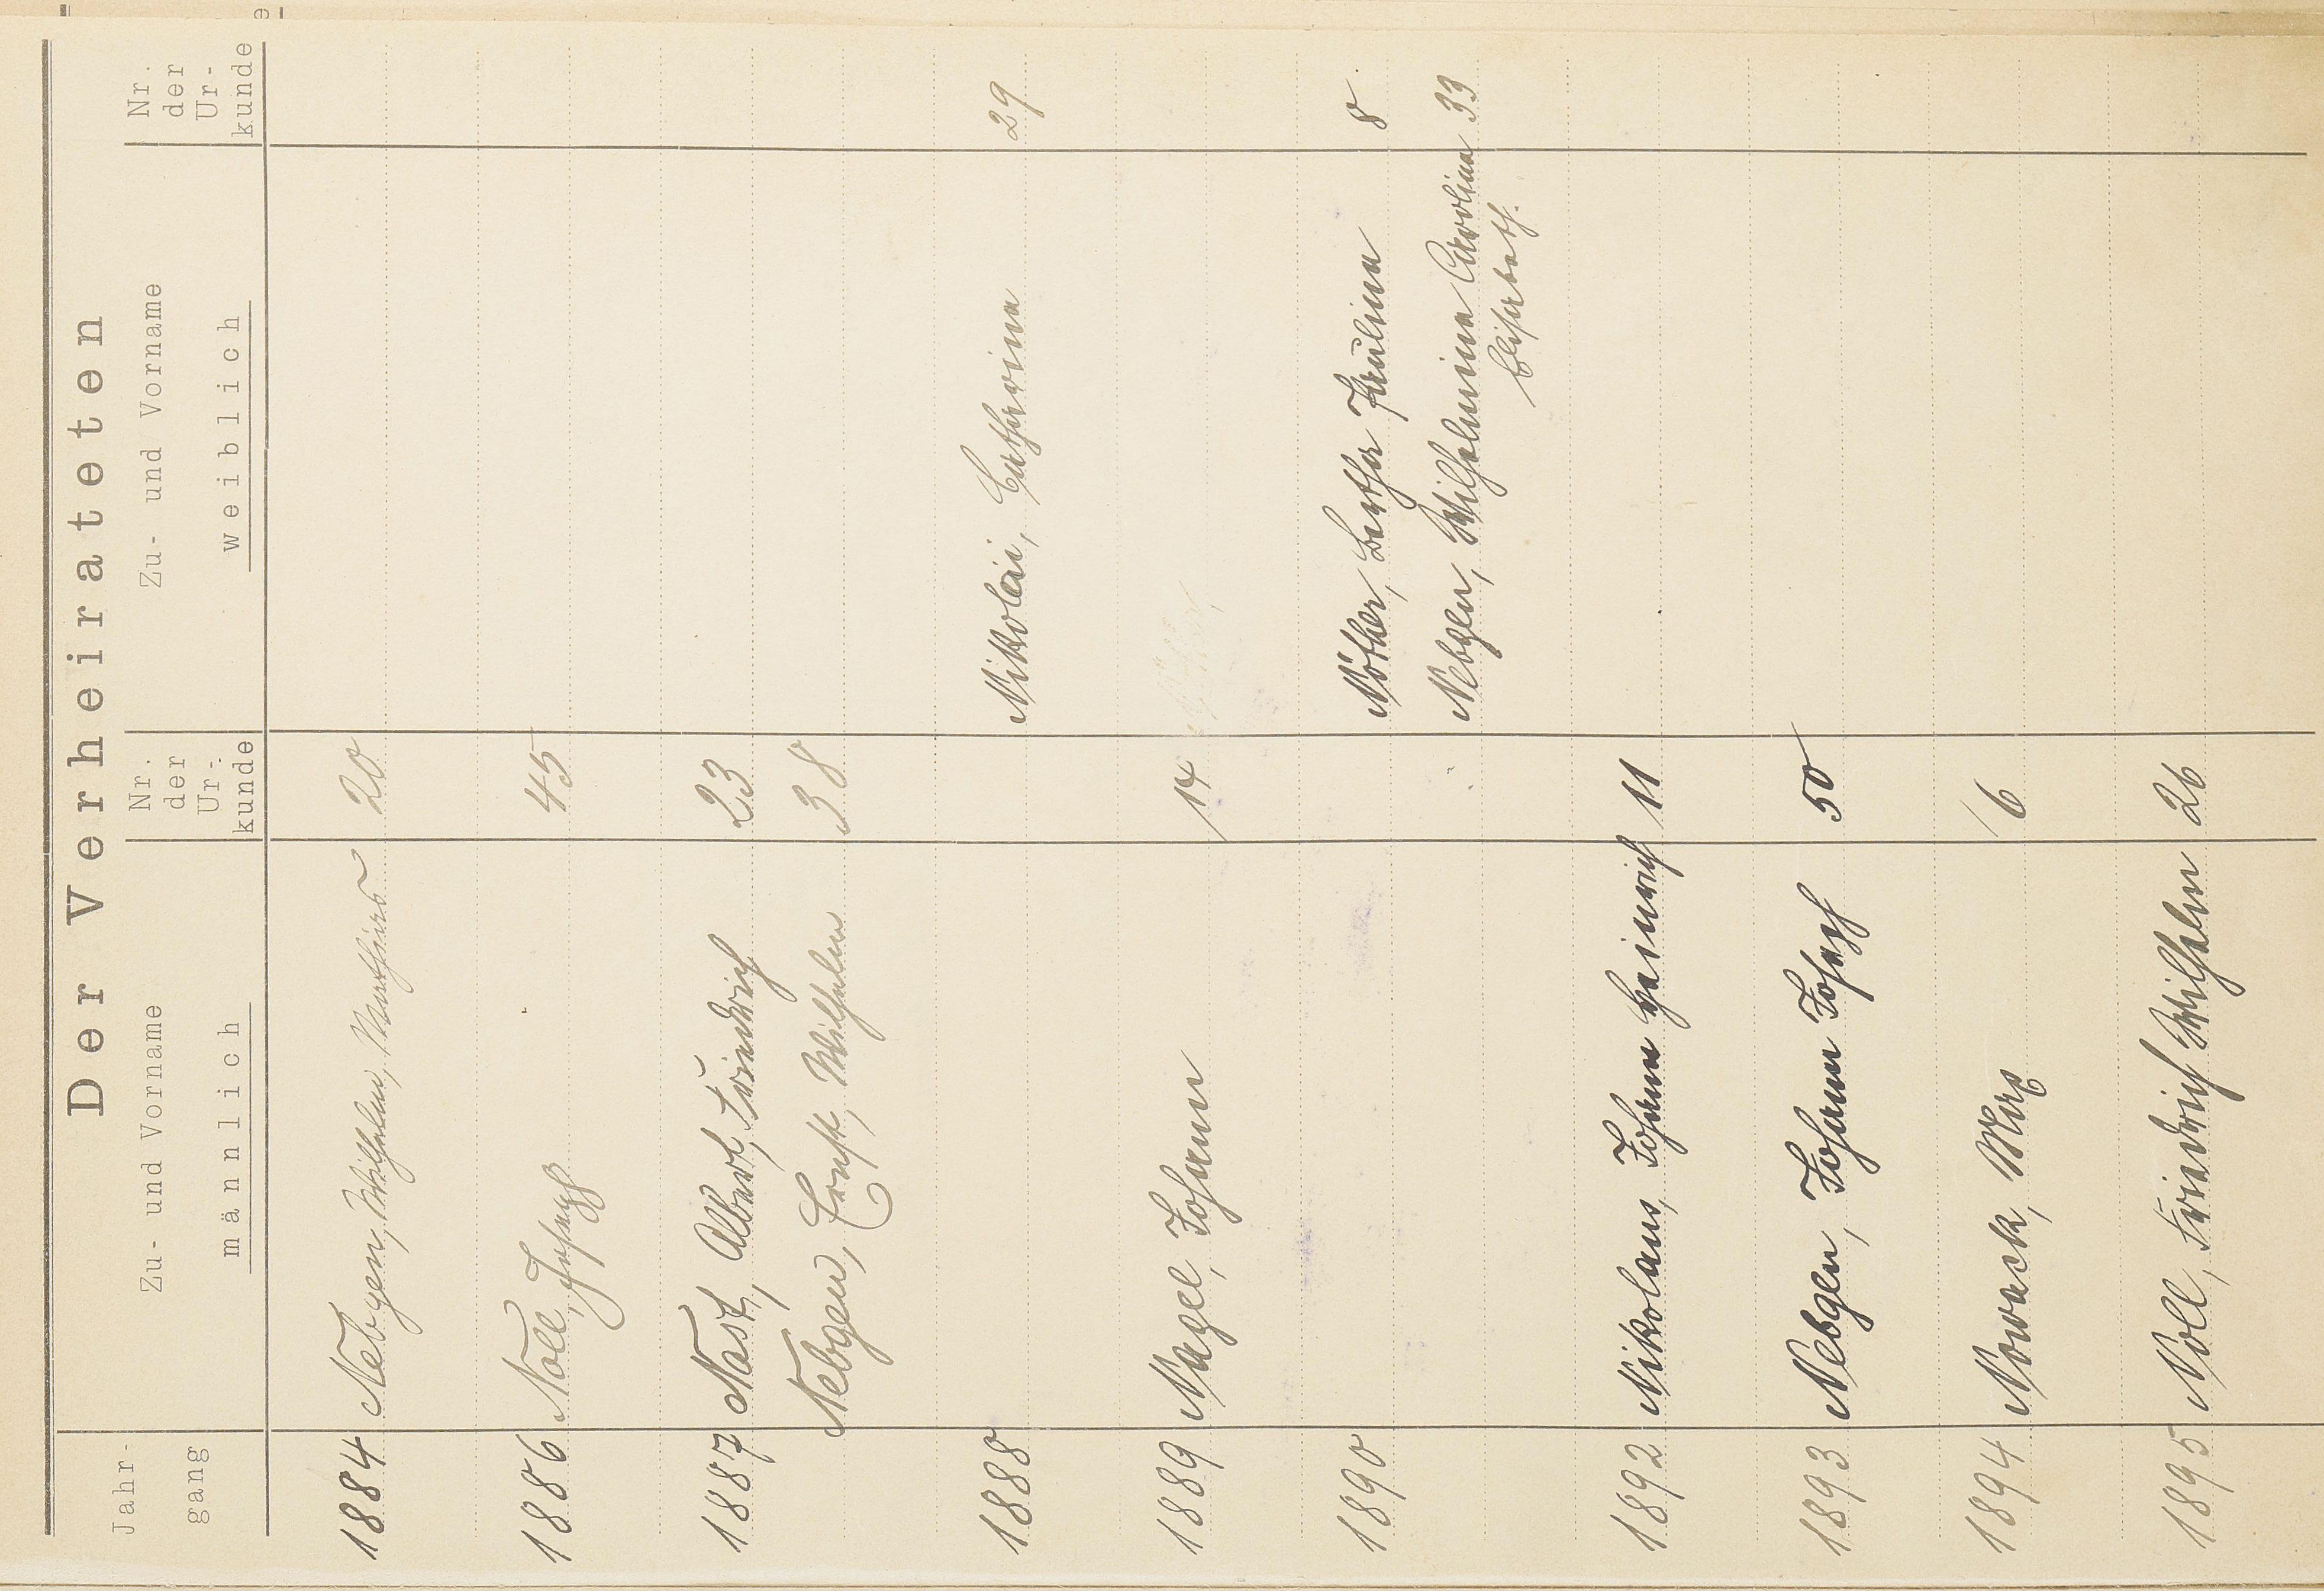 Der Verheirateten
Jahr-
gang
Zu- und Vorname
männlich
Nr.
der
Ur-
kunde
Zu- und Vorname
weiblich
Nr.
der
Ur-
kunde
1884 Nebgen, Wilhelm, Mathias 20
1886 Noll, Joseph 45
1887 Nast, Albert, Friedrich 23
Nebgen, Ernst, Wilhelm 38
1888 Nikolai, Catharina 29
1889 Nagel, Johann 14
1890 Nöther, Bertha Paulina 8
Nebgen, Wilhelmina Carolina 33
Elisabeth.
1892 Nikolaus, Johann Heinrich 11
1893 Nebgen, Johann Joseph 50
1894 Nowack, Max 6
1895 Noll, Friedrich Wilhelm 26